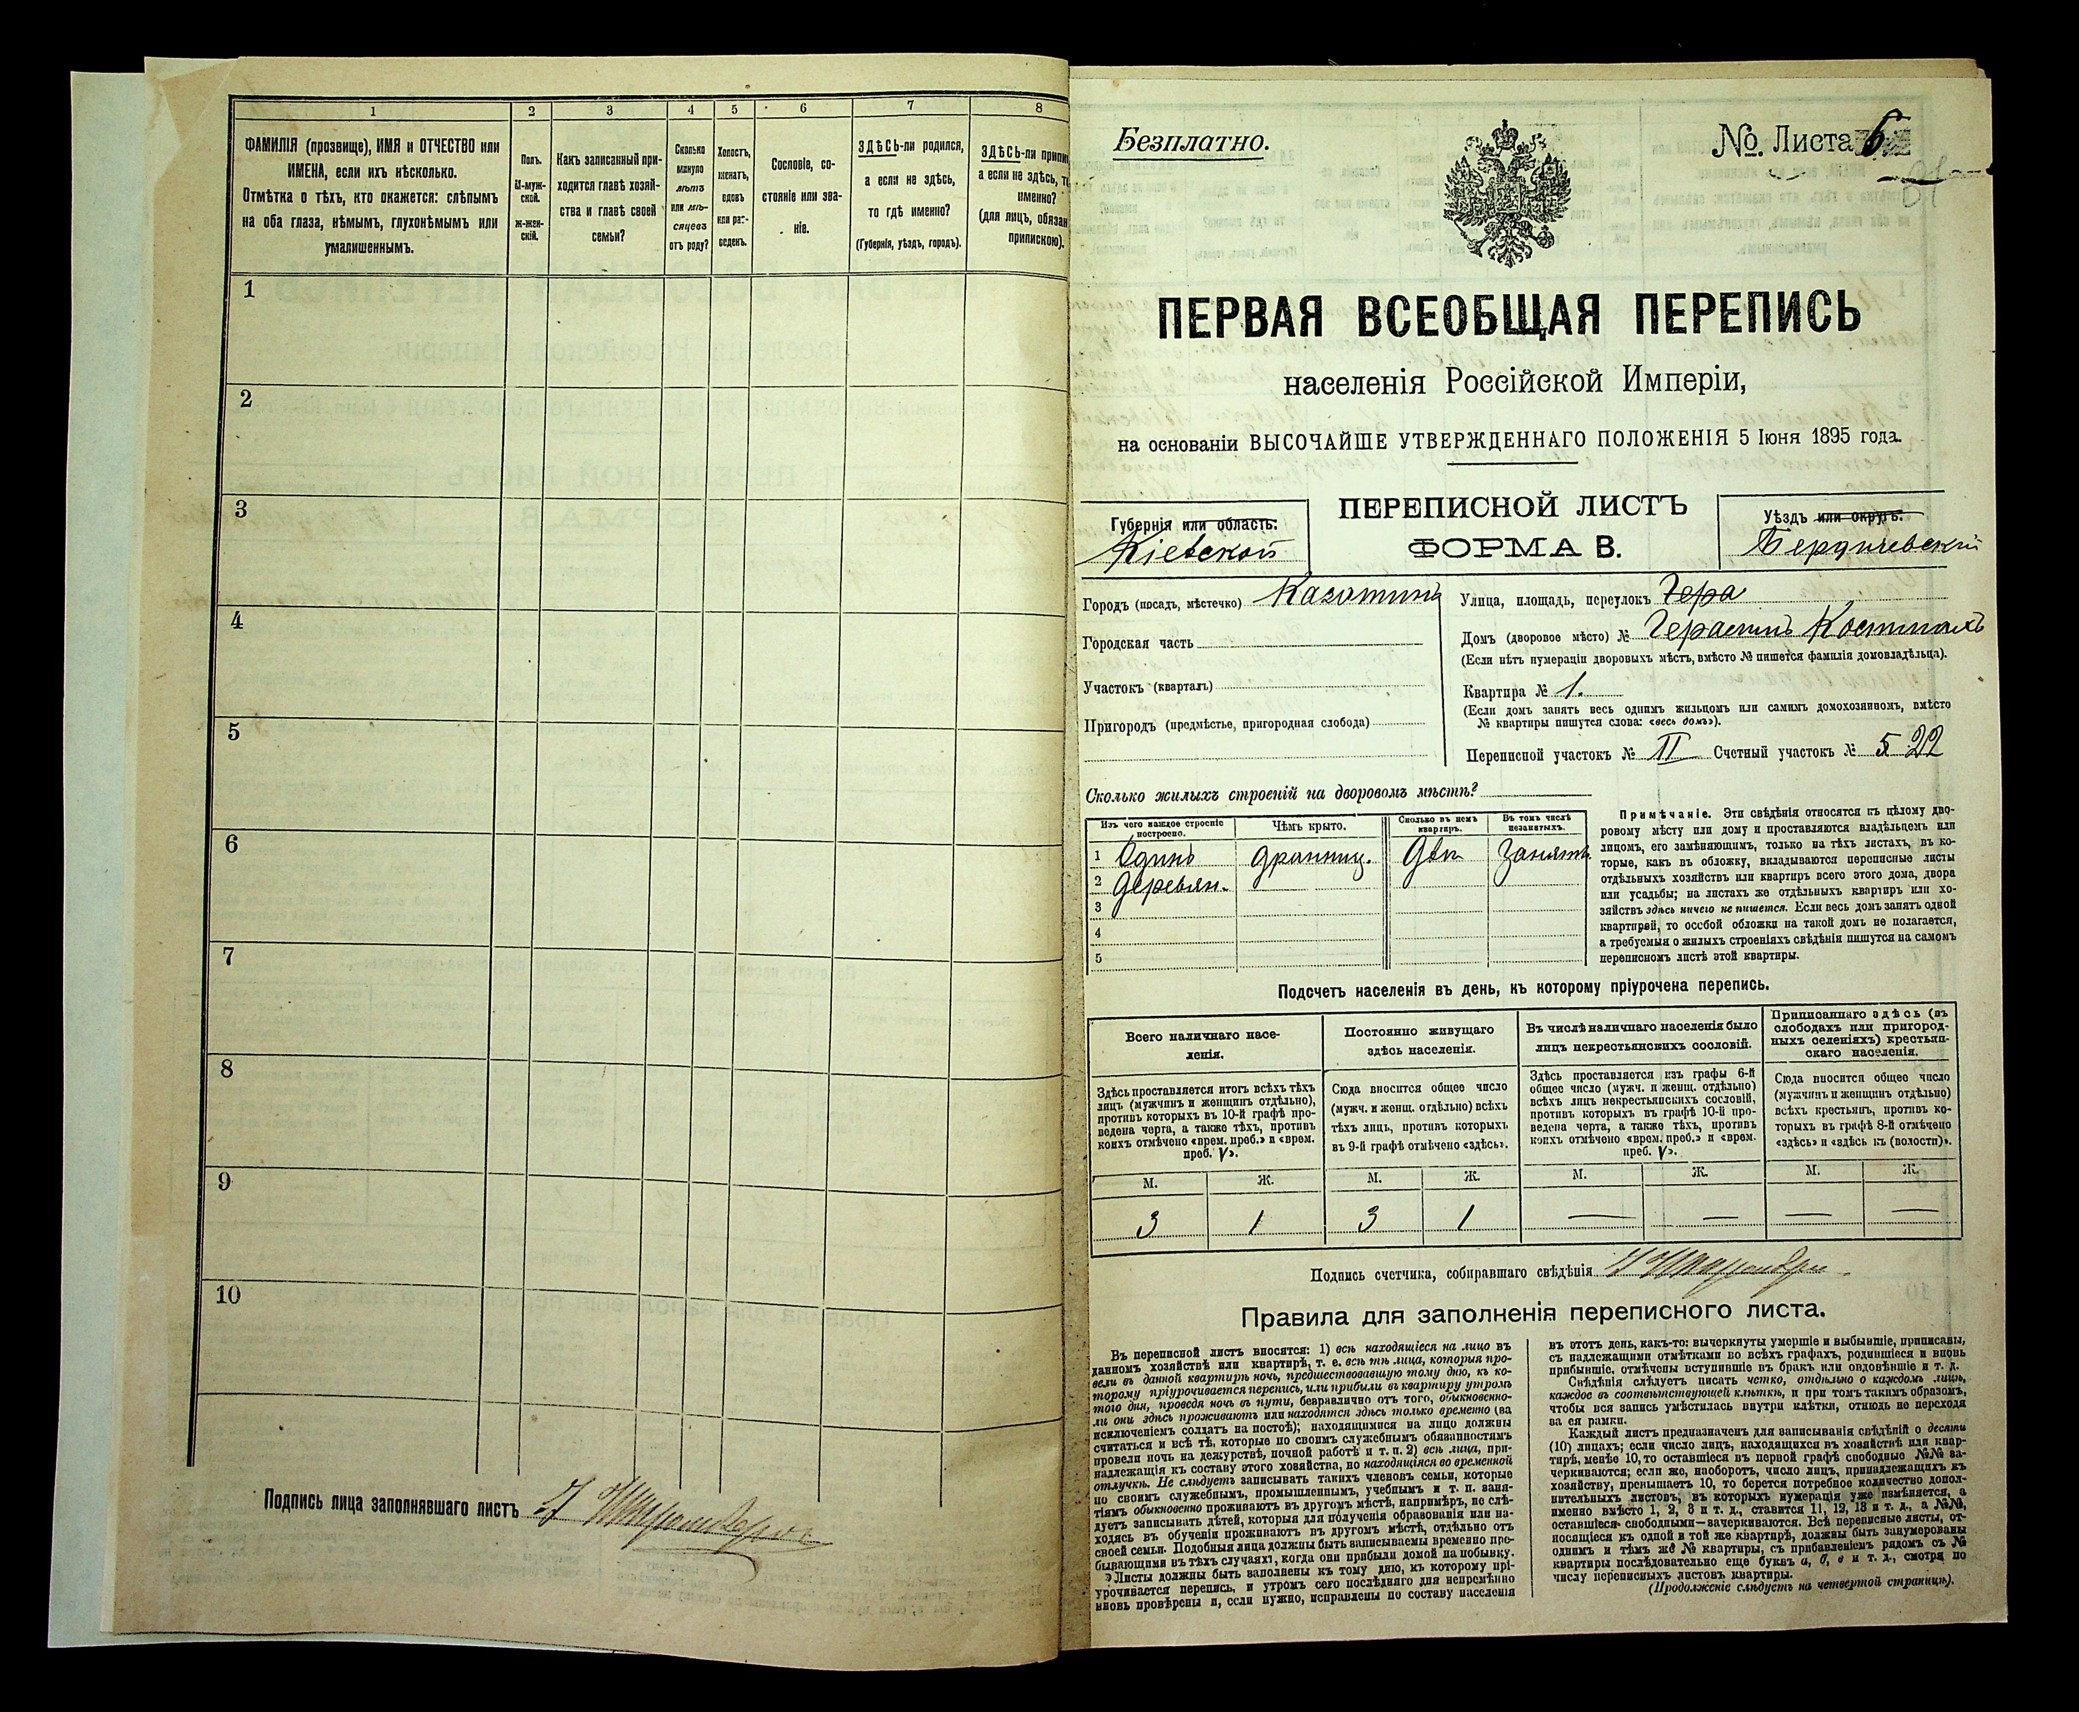 1 2 3 4 5 6 7 8
ФАМИЛІЯ (прозвище), ИМЯ и ОТЧЕСТВО или
ИМЕНА, если ихъ нѣсколько.
Отмѣтка о тѣхъ, кто окажется: слѣпымъ
на оба глаза, нѣмымъ, глухонѣмымъ или
умалишеннымъ.
Полъ.
М-муж-
ской.
Ж-жен-
скій.
Какъ записанный при-
ходится главѣ хозяй-
ства и главѣ своей
семьи?
Сколько
минуло
лѣтъ
или мѣ-
сяцевъ
отъ роду?
Холостъ,
женатъ,
вдовъ
или раз-
веденъ.
Сословіе, со-
стояніе или зва-
ніе.
ЗДѢСЬ-ли родился,
а если не здѣсь,
то гдѣ именно?
(Губернія, уѣздъ, городъ).
ЗДѢСЬ-ли
а если не здѣсь,
именно?
(для лицъ,
припискою).
1
2
3
4
5
6
7
8
9
10
Подпись лица заполнявшаго листъ
Безплатно.
№. Листа 6
ПЕРВАЯ ВСЕОБЩАЯ ПЕРЕПИСЬ
населенія Россійской Имперіи,
на основаніи ВЫСОЧАЙШЕ УТВЕРЖДЕННАГО ПОЛОЖЕНІЯ 5 Іюня 1895 года.
Губернія или область:
Кіевской
ПЕРЕПИСНОЙ ЛИСТЪ
ФОРМА В.
Уѣздъ или округъ:
Бердичевскій
Городъ (посадъ, мѣстечко) Казатинъ
Городская часть
Участокъ (кварталъ)
Пригородъ (предмѣстье, пригородная слобода)
Улица, площадь, переулокъ Гера
Домъ (дворовое мѣсто) № Герасимъ
(Если нѣтъ нумераціи дворовыхъ мѣстъ, вмѣсто № пишется фамилія домовладѣльца).
Квартира № 1.
(Если домъ занятъ весь однимъ жильцомъ или самимъ домохозяиномъ, вмѣсто
№ квартиры пишутся слова: «весь домъ»).
Переписной участокъ № II Счетный участокъ № 5 22
Сколько жилыхъ строеній на дворовомъ мѣстѣ?
Изъ чего каждое строеніе
построено.
Чѣмъ крыто.
Сколько въ немъ
квартиръ.
Въ томъ числѣ
незанятыхъ.
1 Одинъ драниц. Двѣ заняты
2 деревян.
3
4
5
Примѣчаніе. Эти свѣдѣнія относятся къ цѣлому дво-
ровому мѣсту или дому и проставляются владѣльцемъ или
лицомъ, его замѣняющимъ, только на тѣхъ листахъ, въ ко-
торые, какъ въ обложку, вкладываются переписные листы
отдѣльныхъ хозяйствъ или квартиръ всего этого дома, двора
или усадьбы; на листахъ же отдѣльныхъ квартиръ или хо-
зяйствъ здѣсь ничего не пишется. Если весь домъ занятъ одной
квартирой, то особой обложки на такой домъ не полагается,
а требуемыя о жилыхъ строеніяхъ свѣдѣнія пишутся на самомъ
переписномъ листѣ этой квартиры.
Подсчетъ населенія въ день, къ которому пріурочена перепись.
Всего наличнаго насе-
ленія.
Постоянно живущаго
здѣсь населенія.
Въ числѣ наличнаго населенія было
лицъ некрестьянскихъ сословій.
Приписаннаго здѣсь (въ
слободахъ или пригород-
ныхъ селеніяхъ) крестьян-
скаго населенія.
Здѣсь проставляется итогъ всѣхъ тѣхъ
лицъ (мужчинъ и женщинъ отдѣльно),
противъ которыхъ въ 10-й графѣ про-
ведена черта, а также тѣхъ, противъ
коихъ отмѣчено «врем. преб.» и «врем.
преб. V».
Сюда вносится общее число
(мужч. и женщ. отдѣльно) всѣхъ
тѣхъ лицъ, противъ которыхъ
въ 9-й графѣ отмѣчено «здѣсь».
Здѣсь проставляется изъ графы 6-й
общее число (мужч. и женщ. отдѣльно)
всѣхъ лицъ некрестьянскихъ сословій,
противъ которыхъ въ графѣ 10-й про-
ведена черта, а также тѣхъ, противъ
коихъ отмѣчено «врем. преб.» и «врем.
преб. V».
Сюда вносится общее число
(мужчинъ и женщинъ отдѣльно)
всѣхъ крестьянъ, противъ ко-
торыхъ въ графѣ 8-й отмѣчено
«здѣсь» и «здѣсь къ (волости)».
М. Ж. М. Ж. М. Ж. М. Ж.
3 1 3 1 — — — —
Подпись счетчика, собиравшаго свѣдѣнія
Правила для заполненія переписного листа.
Въ переписной листъ вносятся: 1) всѣ находящіеся на лицо въ
данномъ хозяйствѣ или квартирѣ, т. е. всѣ тѣ лица, которыя про-
вели въ данной квартирѣ ночь, предшествовавшую тому дню, къ ко-
торому пріурочивается перепись, или прибыли въ квартиру утромъ
того дня, проведя ночь въ пути, безразлично отъ того, обыкновенно-
ли они здѣсь проживаютъ или находятся здѣсь только временно (за
исключеніемъ солдатъ на постоѣ); находящимися на лицо должны
считаться и всѣ тѣ, которые по своимъ служебнымъ обязанностямъ
провели ночь на дежурствѣ, ночной работѣ и т. п. 2) всѣ лица, при-
надлежащія къ составу этого хозяйства, но находящіяся во временной
отлучкѣ. Не слѣдуетъ записывать такихъ членовъ семьи, которые
по своимъ служебнымъ, промышленнымъ, учебнымъ и т. п. заня-
тіямъ обыкновенно проживаютъ въ другомъ мѣстѣ, напримѣръ, не слѣ-
дуетъ записывать дѣтей, которыя для полученія образованія или на-
ходясь въ обученіи проживаютъ въ другомъ мѣстѣ, отдѣльно отъ
своей семьи. Подобныя лица должны быть записываемы временно пре-
бывающими въ тѣхъ случаяхъ, когда они прибыли домой на побывку.
Листы должны быть заполнены къ тому дню, къ которому прі-
урочивается перепись, и утромъ сего послѣдняго дня непремѣнно
вновь провѣрены и, если нужно, исправлены по составу населенія
въ этотъ день, какъ-то: вычеркнуты умершіе и выбывшіе, приписаны,
съ надлежащими отмѣтками во всѣхъ графахъ, родившіеся и вновь
прибывшіе, отмѣчены вступившіе въ бракъ или овдовѣвшіе и т. д.
Свѣдѣнія слѣдуетъ писать четко, отдѣльно о каждомъ лицѣ,
каждое въ соотвѣтствующей клѣткѣ, и при томъ такимъ образомъ,
чтобы вся запись умѣстилась внутри клѣтки, отнюдь не переходя
за ея рамки.
Каждый листъ предназначенъ для записыванія свѣдѣній о десяти
(10) лицахъ; если число лицъ, находящихся въ хозяйствѣ или квар-
тирѣ, менѣе 10, то оставшіеся въ первой графѣ свободные №№ за-
черкиваются; если же, наоборотъ, число лицъ, принадлежащихъ къ
хозяйству, превышаетъ 10, то берется потребное количество допол-
нительныхъ листовъ, въ которыхъ нумерація уже измѣняется, а
именно вмѣсто 1, 2, 3 и т. д., ставится 11, 12, 13 и т. д., а №№,
оставшіеся свободными—зачеркиваются. Всѣ переписные листы, от-
носящіеся къ одной и той же квартирѣ, должны быть занумерованы
однимъ и тѣмъ же № квартиры, съ прибавленіемъ рядомъ съ №
квартиры послѣдовательно еще буквъ а, б, в и т. д., смотря по
числу переписныхъ листовъ квартиры.
(Продолженіе слѣдуетъ на четвертой страницѣ).